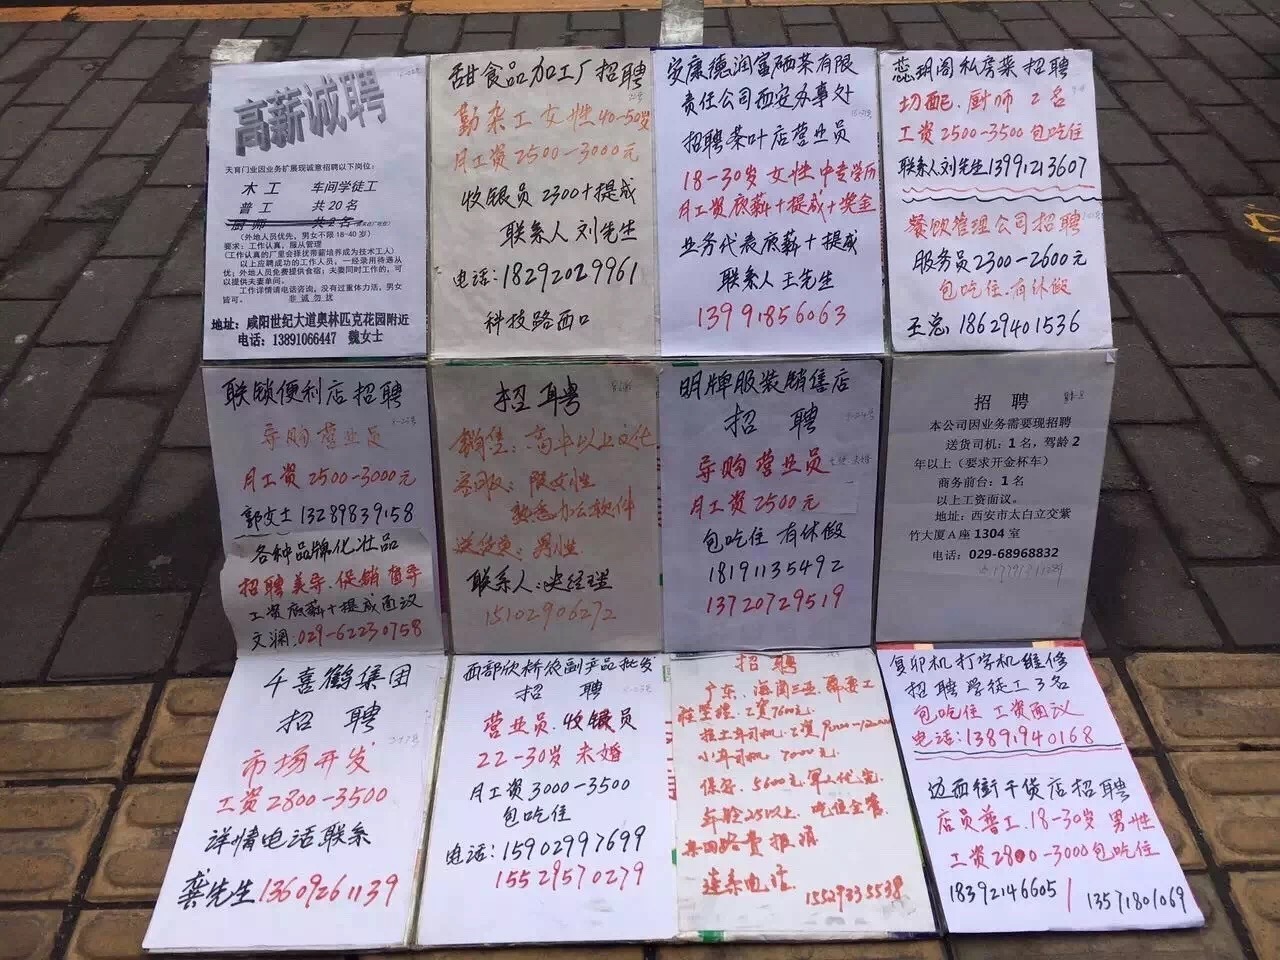 高薪诚聘
天育门业因业务扩展现诚意招聘以下岗位：
木工 车间学徒工
普工 共20名
厨师 共2名
（外地人员优先，男女不限 18-40岁）
要求：工作认真，服从管理
（工作认真的厂里会择优带薪培养成为技术工人）
以上应聘成功的工作人员，一经录用待遇从
优；外地人员免费提供食宿；夫妻同时工作的，可
以提供夫妻单间。
工作详情请电话咨询，没有过重体力活，男女
皆可。 非诚勿扰
地址：咸阳世纪大道奥林匹克花园附近
电话：13891066447 魏女士
甜食品加工厂招聘
勤杂工女性40-50岁
月工资2500-3000元
收银员2300+提成
联系人刘先生
电话：18292029961
科技路西口
安康德润富硒茶有限
责任公司西安办事处
招聘茶叶店营业员
18-30岁 女性 中专学历
月工资底薪+提成+奖金
业务代表底薪+提成
联系人王先生
13991856063
蕊玥阁私房菜招聘
切配．厨师 2名
工资2500-3500包吃住
联系人刘先生13991213607
餐饮管理公司招聘
服务员2300-2600元
包吃住．有休假
王总：18629401536
联锁便利店招聘
导购营业员
月工资2500-3000元
郭女士13289839158
各种品牌化壮品
招聘美导．促销 督导
工资底薪+提成面议
文澜：029-62230758
招聘
销售：高中以上文化
客服：限女性
熟悉办公软件
送货员：男性
联系人：史经理
15102906272
明牌服装销售店
招 聘
导购营业员
月工资2500元
包吃住 有休假
18191135492
13720729519
招聘
本公司因业务需要现招聘
送货司机：1名，驾龄2
年以上（要求开金杯车）
商务前台：1名
以上工资面议。
地址：西安市太白立交紫
竹大厦A座1304室
电话：029-68968832
千喜鹤集团
招 聘
市场开发
工资2800-3500
详情电话联系
龚先生13609261139
西部欣桥农副产品批发
招 聘
营业员．收银员
22-30岁 未婚
月工资3000-3500
包吃住
电话：15902997699
15529570279
招聘
广东．海南三亚．需要工
工资7600元．
小车司机 7000元．
保安．5600元．军人优先
年龄25以上．吃住全管．
来回路费报销
连系电话．
15529335538
复印机打字机维修
招聘学徒工3名
包吃住 工资面议
电话：13891940168
边西街干货店招聘
店员普工．18-30岁 男性
工资2800-3000包吃住
18392146605/13571801069